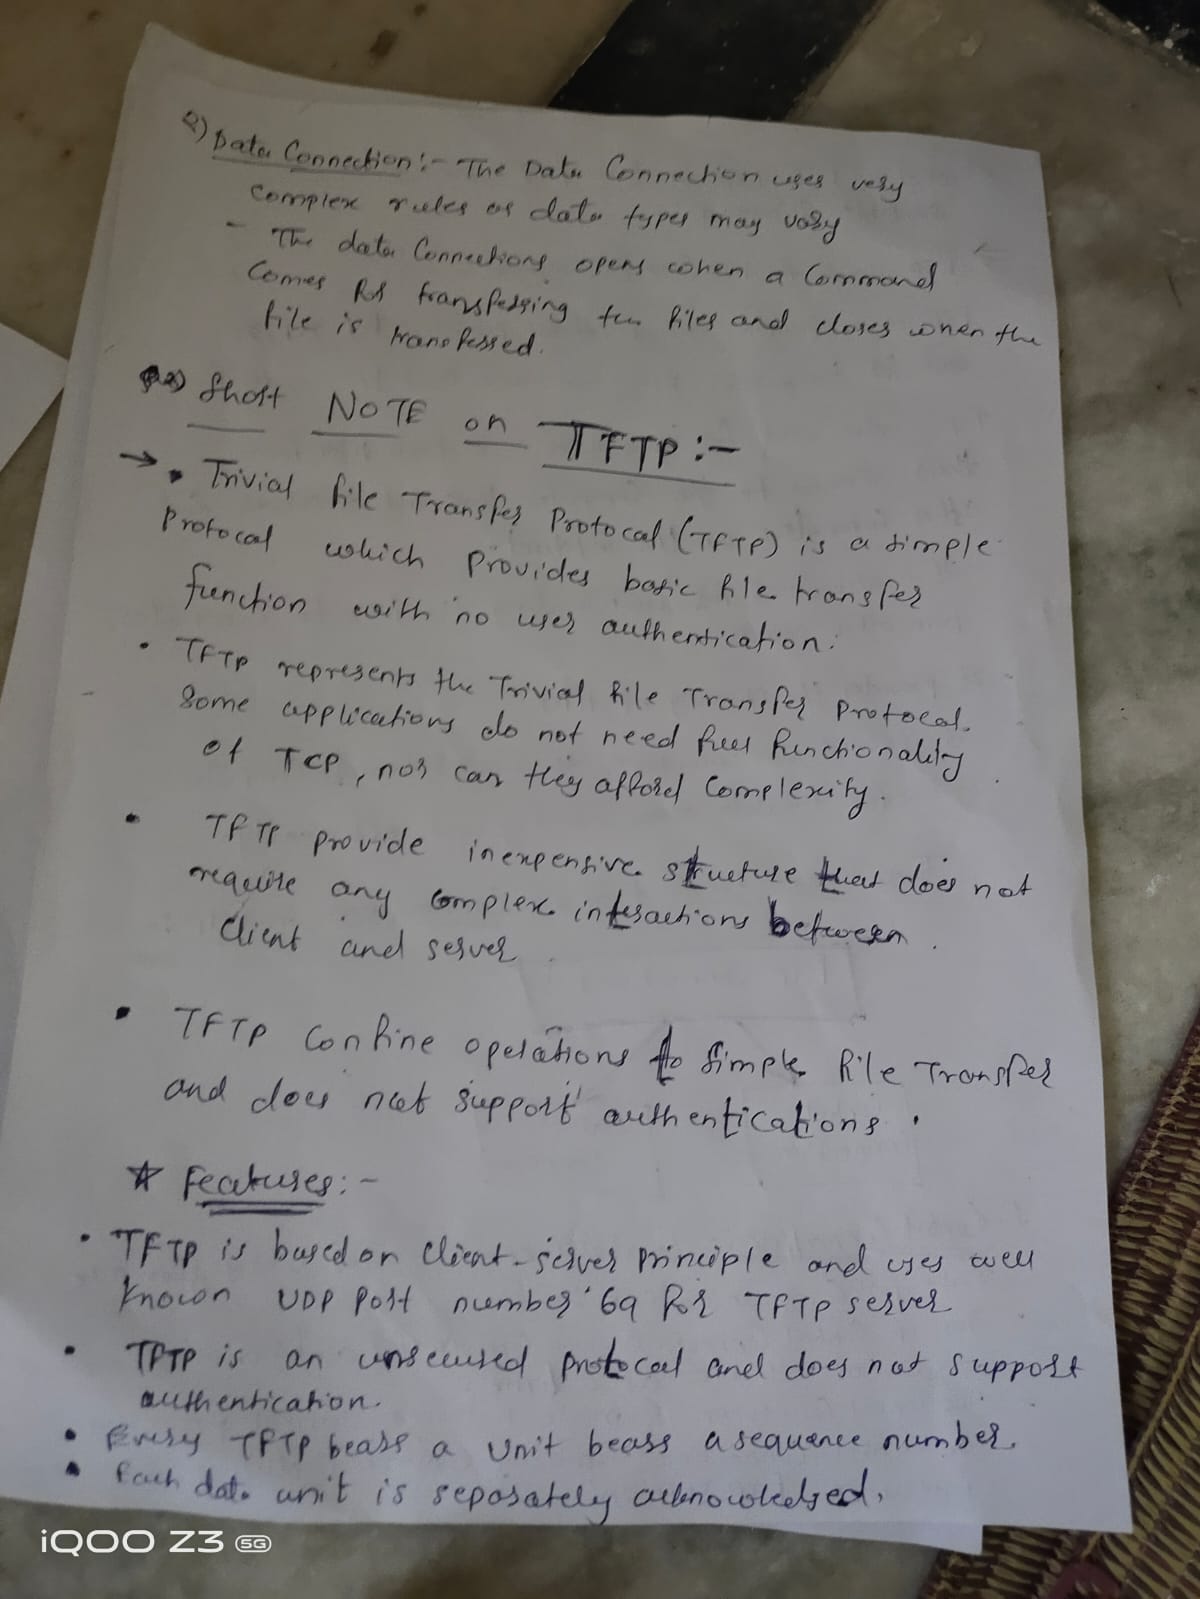 2) Data Connection:- The Data Connection uses very
complex rules as data types may vary
- The data Connections opens when a Command
Comes for transferring the files and closes when the
file is transferred.
Short NOTE on TFTP:-
→ • Trivial file Transfer Protocal (TFTP) is a simple
Protocal which Provides basic file transfer
function with no user authentication.
• TFTP represents the Trivial file Transfer Protocol.
Some applications do not need full functionality
of TCP, nor can they afford Complexity.
• TFTP provide inexpensive structure that does not
require any complex interactions between
Client and server
• TFTP Confine operations to simple file Transfer
and does not support authentications.
☆ Features:-
• TFTP is based on Client-server Principle and uses well
known UDP Port number 69 for TFTP server
• TFTP is an unsecured protocol and does not support
authentication.
• Every TFTP bears a Unit bears a sequance number.
• Each data unit is separately acknowledged.
iQOO Z3 5G